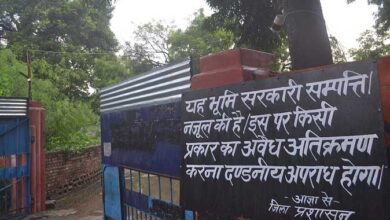 यह भूमि सरकारी सम्पत्ति।
नजूल की है। इस पर किसी
प्रकार का अवैध अतिक्रमण
करना दण्डनीय अपराध होगा।
आज्ञा से-
जिला प्रशासन